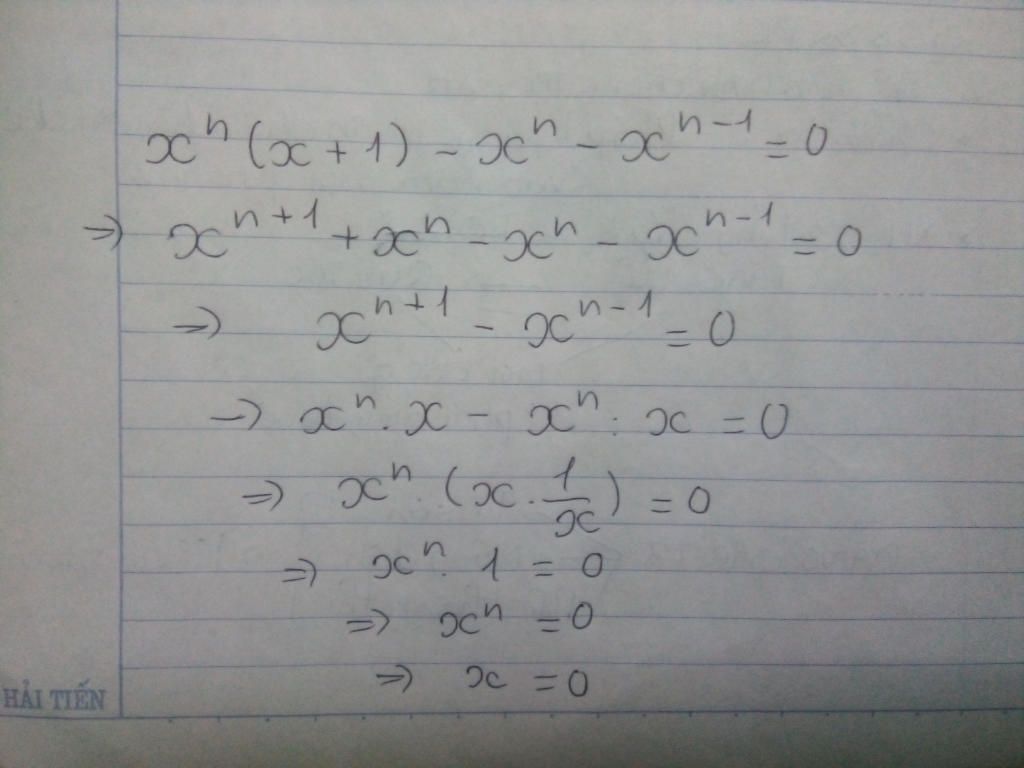 xⁿ (x + 1) - xⁿ - xⁿ⁻¹ = 0
=> xⁿ⁺¹ + xⁿ - xⁿ - xⁿ⁻¹ = 0
=> xⁿ⁺¹ - xⁿ⁻¹ = 0
=> xⁿ . x - xⁿ : x = 0
=> xⁿ . (x . 1/x) = 0
=> xⁿ . 1 = 0
=> xⁿ = 0
=> x = 0
HẢI TIẾN